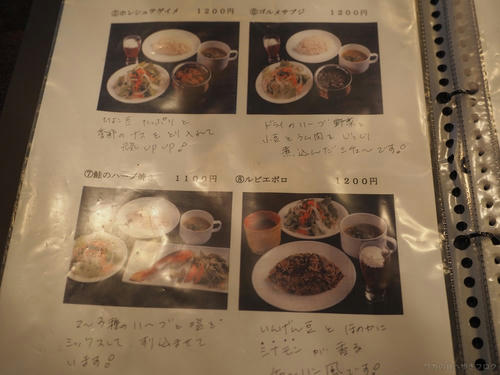 ⑤ホレシュサゲイメ 1200円
⑥ゴルメサブジ 1200円
ひよこ豆 たっぷりと
季節のナスをとり入れて
元気up up!
ドライのハーブ野菜と
小豆とラム肉をじっくり
煮込んだシチューです!
⑦鮭のハーブ焼 1100円
⑧ルビエポロ 1200円
2〜3種のハーブと塩を
ミックスして 刷込ませて
います!
いんげん豆と ほのかに
シナモンが香る